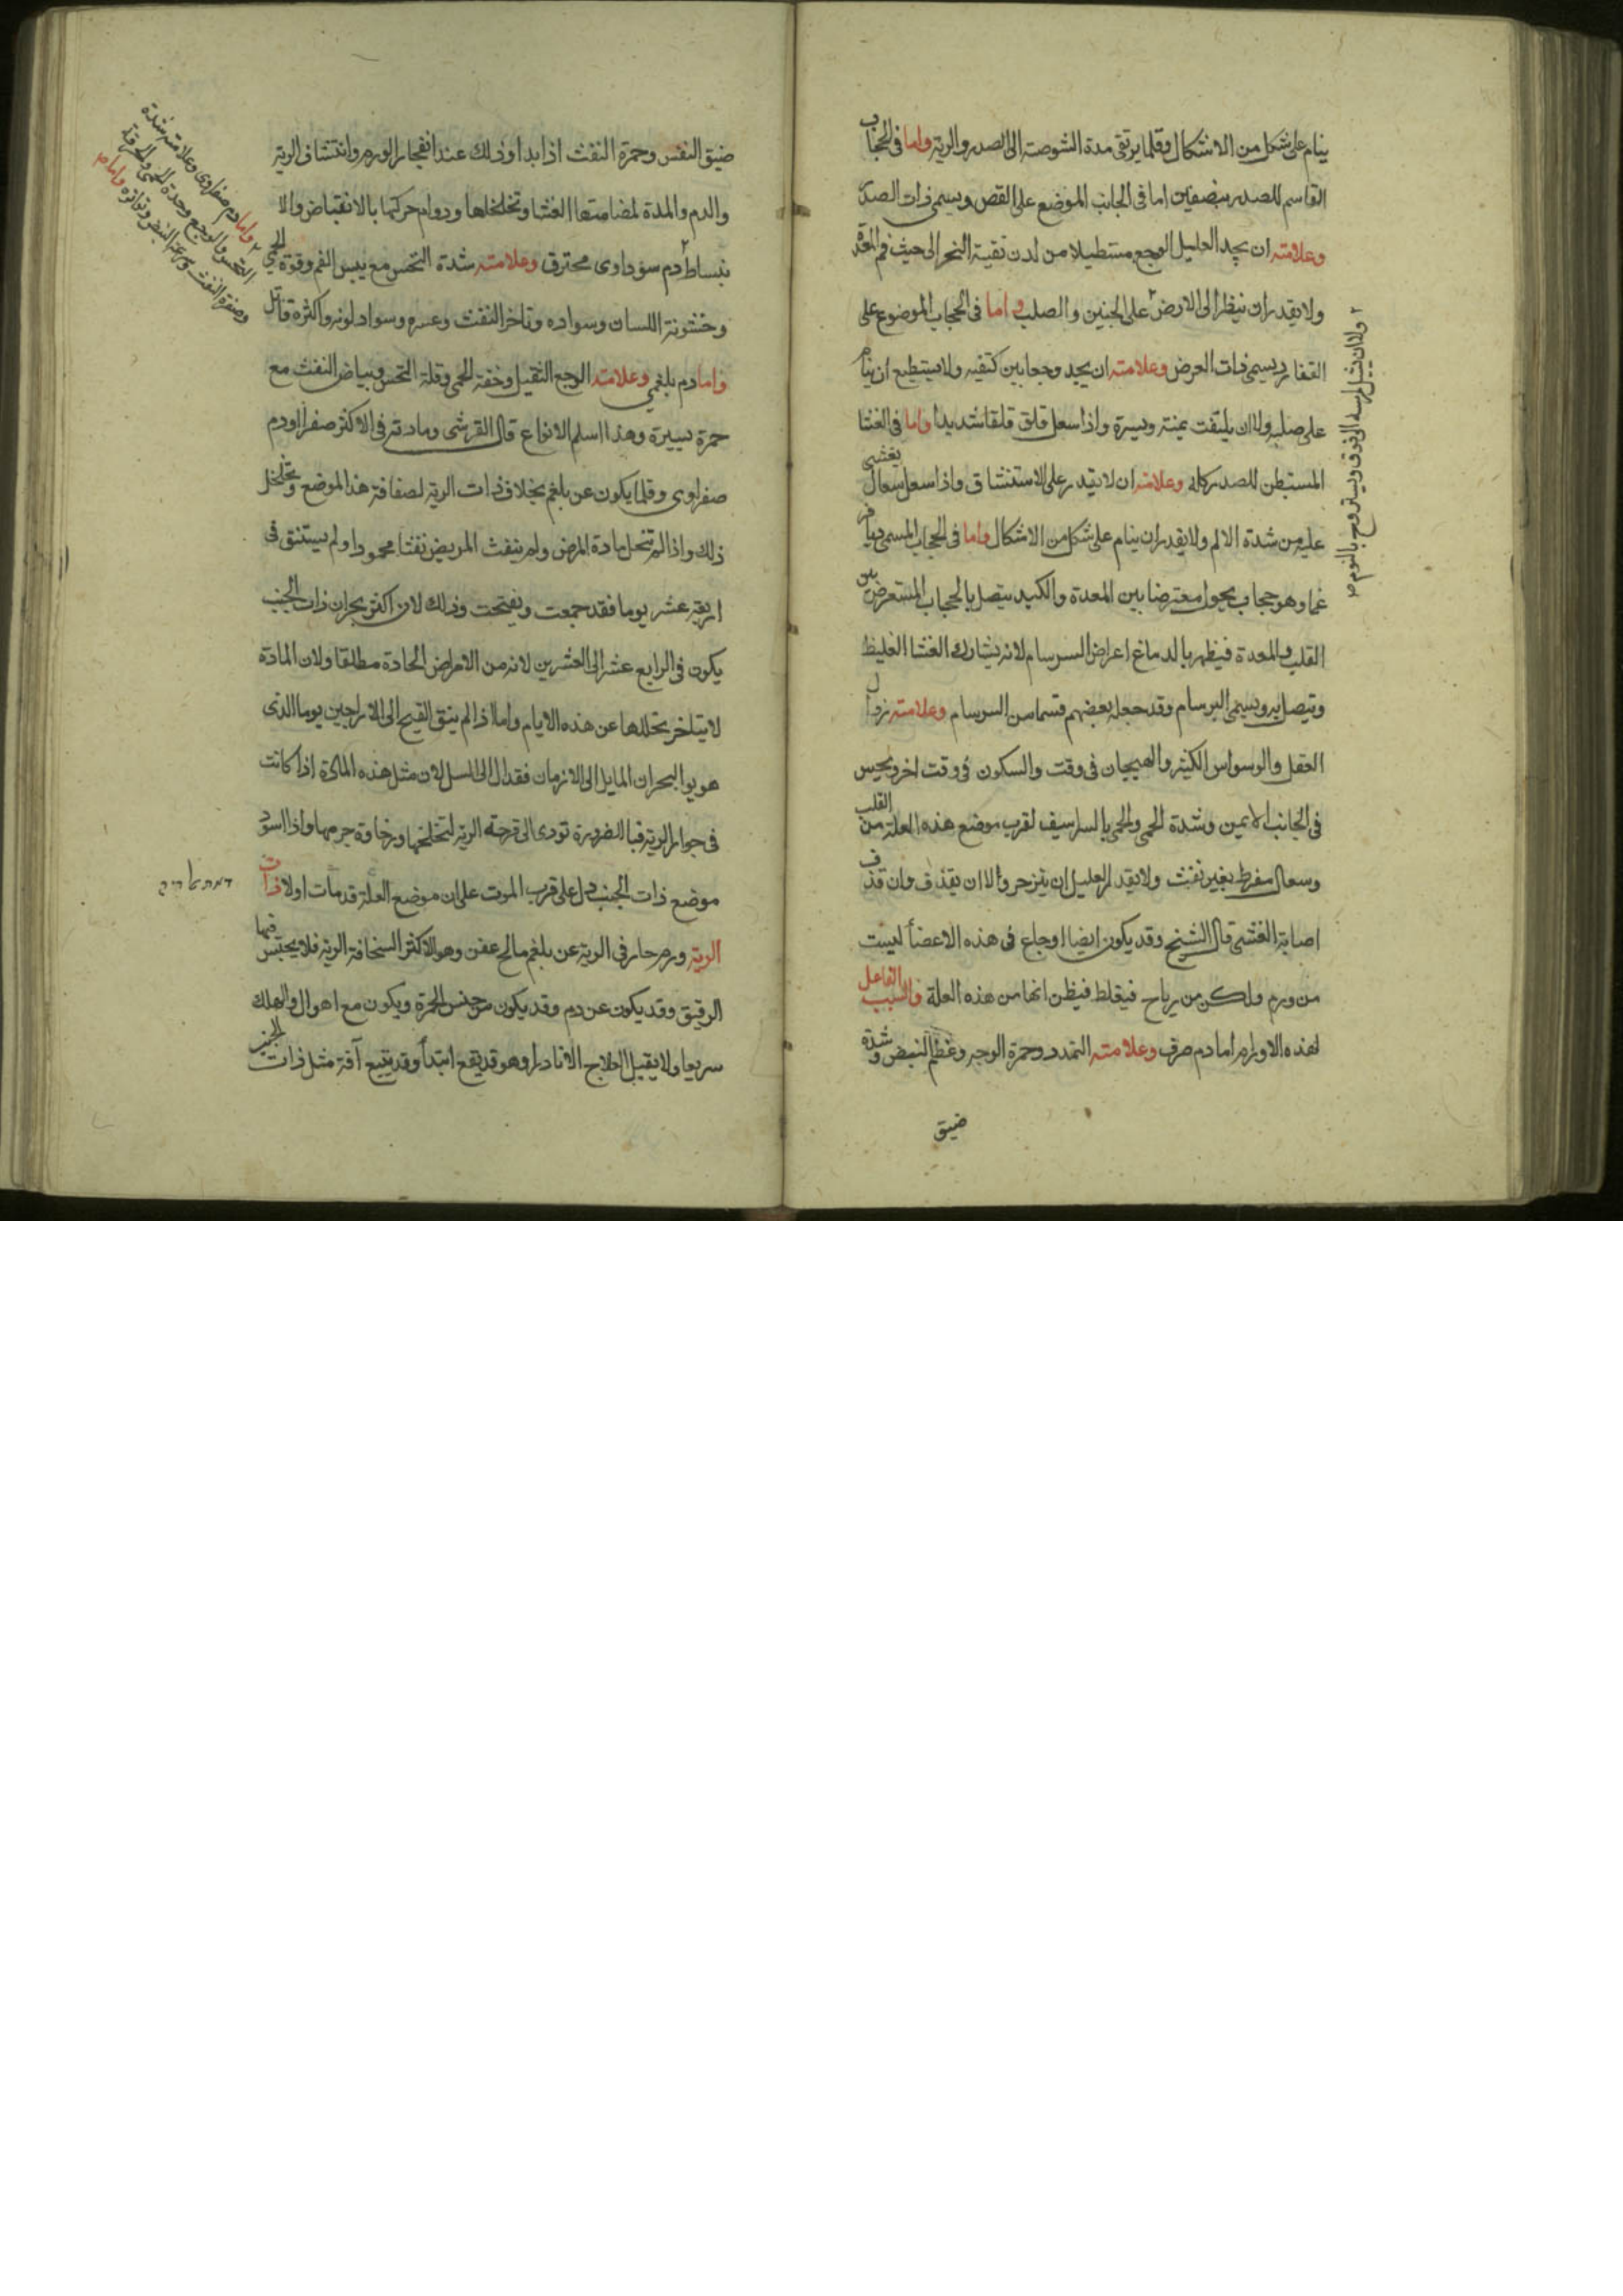 ينام على شكل من الاشكال وقلما يرتقى مدة الشوصة الى الصدر والرية واما فى الحجاب
القاسم للصدر بنصفين اما فى الجانب الموضع على القص ويسمى ذات الصدر
وعلامته ان يجد العليل الوجع مستطيلا من لدن نقية النحر الى حيث فم المعدة
ولا يقدر ان ينظر الى الارض على الجبنين والصلب واما فى الحجاب الموضوع على
الفقار ويسمى ذات العرض وعلامته ان يجد وجعا بين كتفيه ولا يستطيع ان ينام
على صلبه ولا ان يلتفت يمنة ويسرة واذا سعل قلق قلقا شديدا واما فى الغشا
المستبطن للصدر كله وعلامته ان لا يقدر على الاستنشاق واذا سعل سعال يغشى
عليه من شدة الالم ولا يقدر ان ينام على شكل من الاشكال واما فى الحجاب المسمى ديافر
غما وهو حجاب يحول معترضا بين المعدة والكبد يتصل بالحجاب المستعرض بين
القلب والمعدة فيظهر بالدماغ اعراض السرسام لانه يشارك الغشا الغليظ
ويتصل به ويسمى البرسام وقد جعله بعضهم قسما من السرسام وعلامته زوال
العقل والوسواس الكثير والهيجان فى وقت والسكون فى وقت اخر ويحبس
فى الجانب الايمن وشدة الحمى والحمى بالسراسيف لقرب موضع هذه العلة من القلب
وسعال مفرط بغير نفث ولا يقدر العليل ان يتزحر والا ان يقذف وان قذف
اصابة الغشى قال الشيخ وقد يكون ايضا اوجاع فى هذه الاعضأ ليست
من ورم ولكن من رياح فيغلط فيظن انها من هذه العلة والسبب الفاعل
لهذه الاورام اما دم صرف وعلامته التمدد وحمرة الوجه وعظم النبض وشدة
ضيق
ولا ان يشيل راسه الى فوق ويستروح بالنوم صح
ضيق النفس وحمرة النفث اذا بدا وذلك عند انفجار الورم وانتشاف الرية
والدم والمدة لمضامتها الغشا وتخلخلها ودوام حركتها بالانقباض والا
نبساط دم سوداوى محترق وعلامته شدة النخس مع يبس الفم وقوة الحمى
وخشونة اللسان وسواده وتاخر النفث وعسره وسواد لونه واكثره قاتل
واما دم بلغمي وعلامته الوجع الثقيل وخفة الحمى وقلة النخس وبياض النفث مع
حمرة يسيرة وهذا اسلم الانواع قال القرشى ومادته فى الاكثر صفرا اودم
صفراوى وقلما يكون عن بلغم بخلاف ذات الرية لصفاقة هذا الموضع وتخلخل
ذلك واذا لم تنحل مادة المرض ولم ينفث المريض نفثا محمودا ولم يستنق فى
اربعة عشر يوما فقد جمعت وتفتحت وذلك لان اكثر بحران ذات الجنب
يكون فى الرابع عشر الى العشرين لانه من الامراض الحادة مطلقا ولان المادة
لا يتاخر تحللها عن هذه الايام واما اذا لم ينق القيح الى الاربعين يوما الذى
هو يوا البحران المايل الى الازمان فقد ال الى السل لان مثل هذه المادة اذا كانت
فى جوار الرية فبالضرورة تودى الى قرحة الرية لتخلخلها ورخاوة جرمها واذا اسود
موضع ذات الجنب دل على قرب الموت على ان موضع العلة قد مات اولا ذات
الرية ورم حار فى الرية عن بلغم مالح عفن وهو الاكثر السخافة الرية فلا يحتبس فيها
الرقيق وقد يكون عن دم وقد يكون من جنس الحمرة ويكون مع اهوال والهلك
سريعا ولا يقبل العلاج الا نادرا وهو قد يقع ابتدأ وقد يتبع آفة مثل ذات الجنب
واما دم صفراوى وعلامته شدة
النخس والوجع وحدة الحمى والحرقة
وصفرة النفث وسرعة النبض وتواتره واما صح